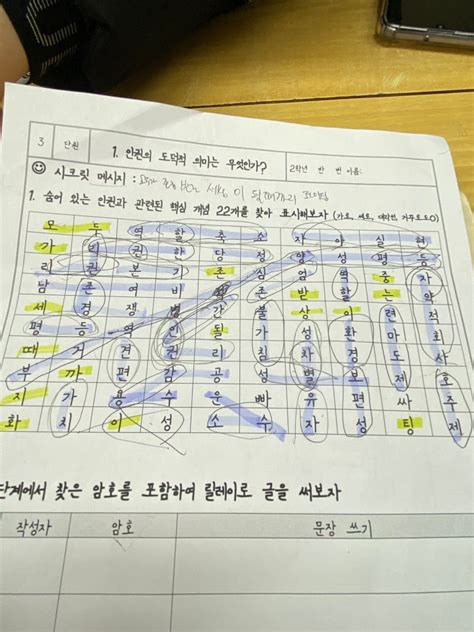 3 단원 1. 인권의 도덕적 의미는 무엇인가? 2학년 반 번 이름:
시크릿 메시지 : 모두가 존중 받는 세상 이 될때까지 화이팅
1. 숨어 있는 인권과 관련된 핵심 개념 22개를 찾아 표시해보자 (가로, 세로, 대각선, 거꾸로도O)
모 두 역 할 축 소 자 아 실 현
가 리 권 한 당 정 양 성 평 등
리 권 본 기 존 심 엄 역 중 자
남 존 여 비 존 받 할 는 약
세 경 쟁 별 간 불 상 이 련 적
평 등 역 인 될 가 성 환 마 회
때 거 견 권 리 침 차 경 도 사
부 까 편 감 공 성 별 보 제 호
지 가 용 수 운 빠 유 편 싸 주
화 치 이 성 소 수 자 성 팅 제
단계에서 찾은 암호를 포함하여 릴레이로 글을 써보자
작성자 암호 문장 쓰기